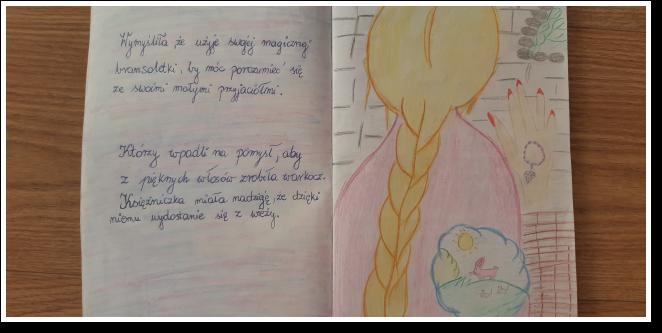 Wymyśliła, że użyje swojej magicznej
bransoletki, by móc porozumieć się
ze swoimi małymi przyjaciółmi.
Którzy wpadli na pomysł, aby
z pięknych włosów zrobiła warkocz.
Księżniczka miała nadzieję, że dzięki
niemu wydostanie się z wieży.